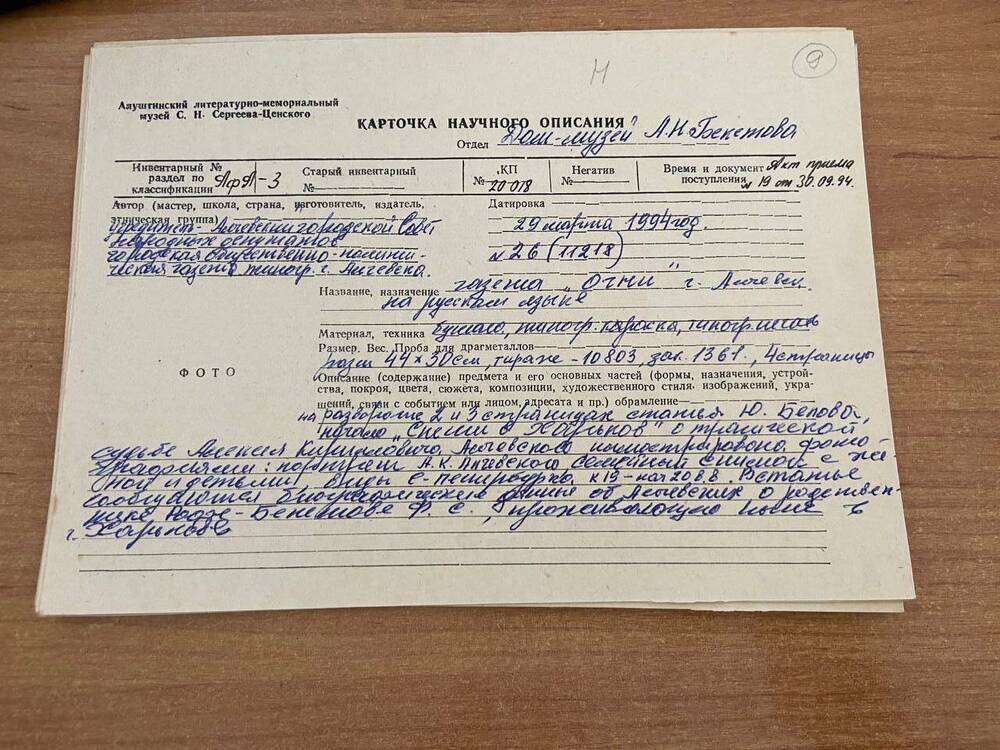 9
Н
Алуштинский литературно-мемориальный
музей С. Н. Сергеева-Ценского
КАРТОЧКА НАУЧНОГО ОПИСАНИЯ
Отдел Дом-музей А.Н. Бекетова
Инвентарный №
раздел по
классификации АфА-3
Старый инвентарный
№
КП
№ 20 018
Негатив
№
Время и документ Акт приема
поступления № 19 от 30.09.94.
Автор (мастер, школа, страна, изготовитель, издатель,
этническая группа)
учредитель- Алчевский городской Совет
народных депутатов
городская общественно-полити-
ческая газета типогр. г. Алчевска.
Датировка
29 марта 1994 год.
№ 26 (11218)
Название, назначение газета „Огни" г. Алчевск
на русском языке
Материал, техника бумага, типогр. краска, типогр. печать
Размер. Вес. Проба для драгметаллов
разм 44 × 30 см, тираж - 10803, зак. 1361, 4 страницы
ФОТО
Описание (содержание) предмета и его основных частей (формы, назначения, устрой-
ства, покроя, цвета, сюжета, композиции, художественного стиля изображений, укра-
шений, связи с событием или лицом, адресата и пр.) обрамление
на развороте 2 и 3 страницах статья Ю. Белова,
начало „ о трагической
судьбе Алексея Кирилловича Алчевского иллюстрирована фото-
графиями: портрет А.К. Алчевского, семейный снимок с же-
ной и детьми, виды С-петербурга, к 19 - нач 20 в.в. В статье
сообщаются биографические данные об Алчевских, о родствен-
нике Бекетове Ф. С., проживающем ныне в
г. Харькове